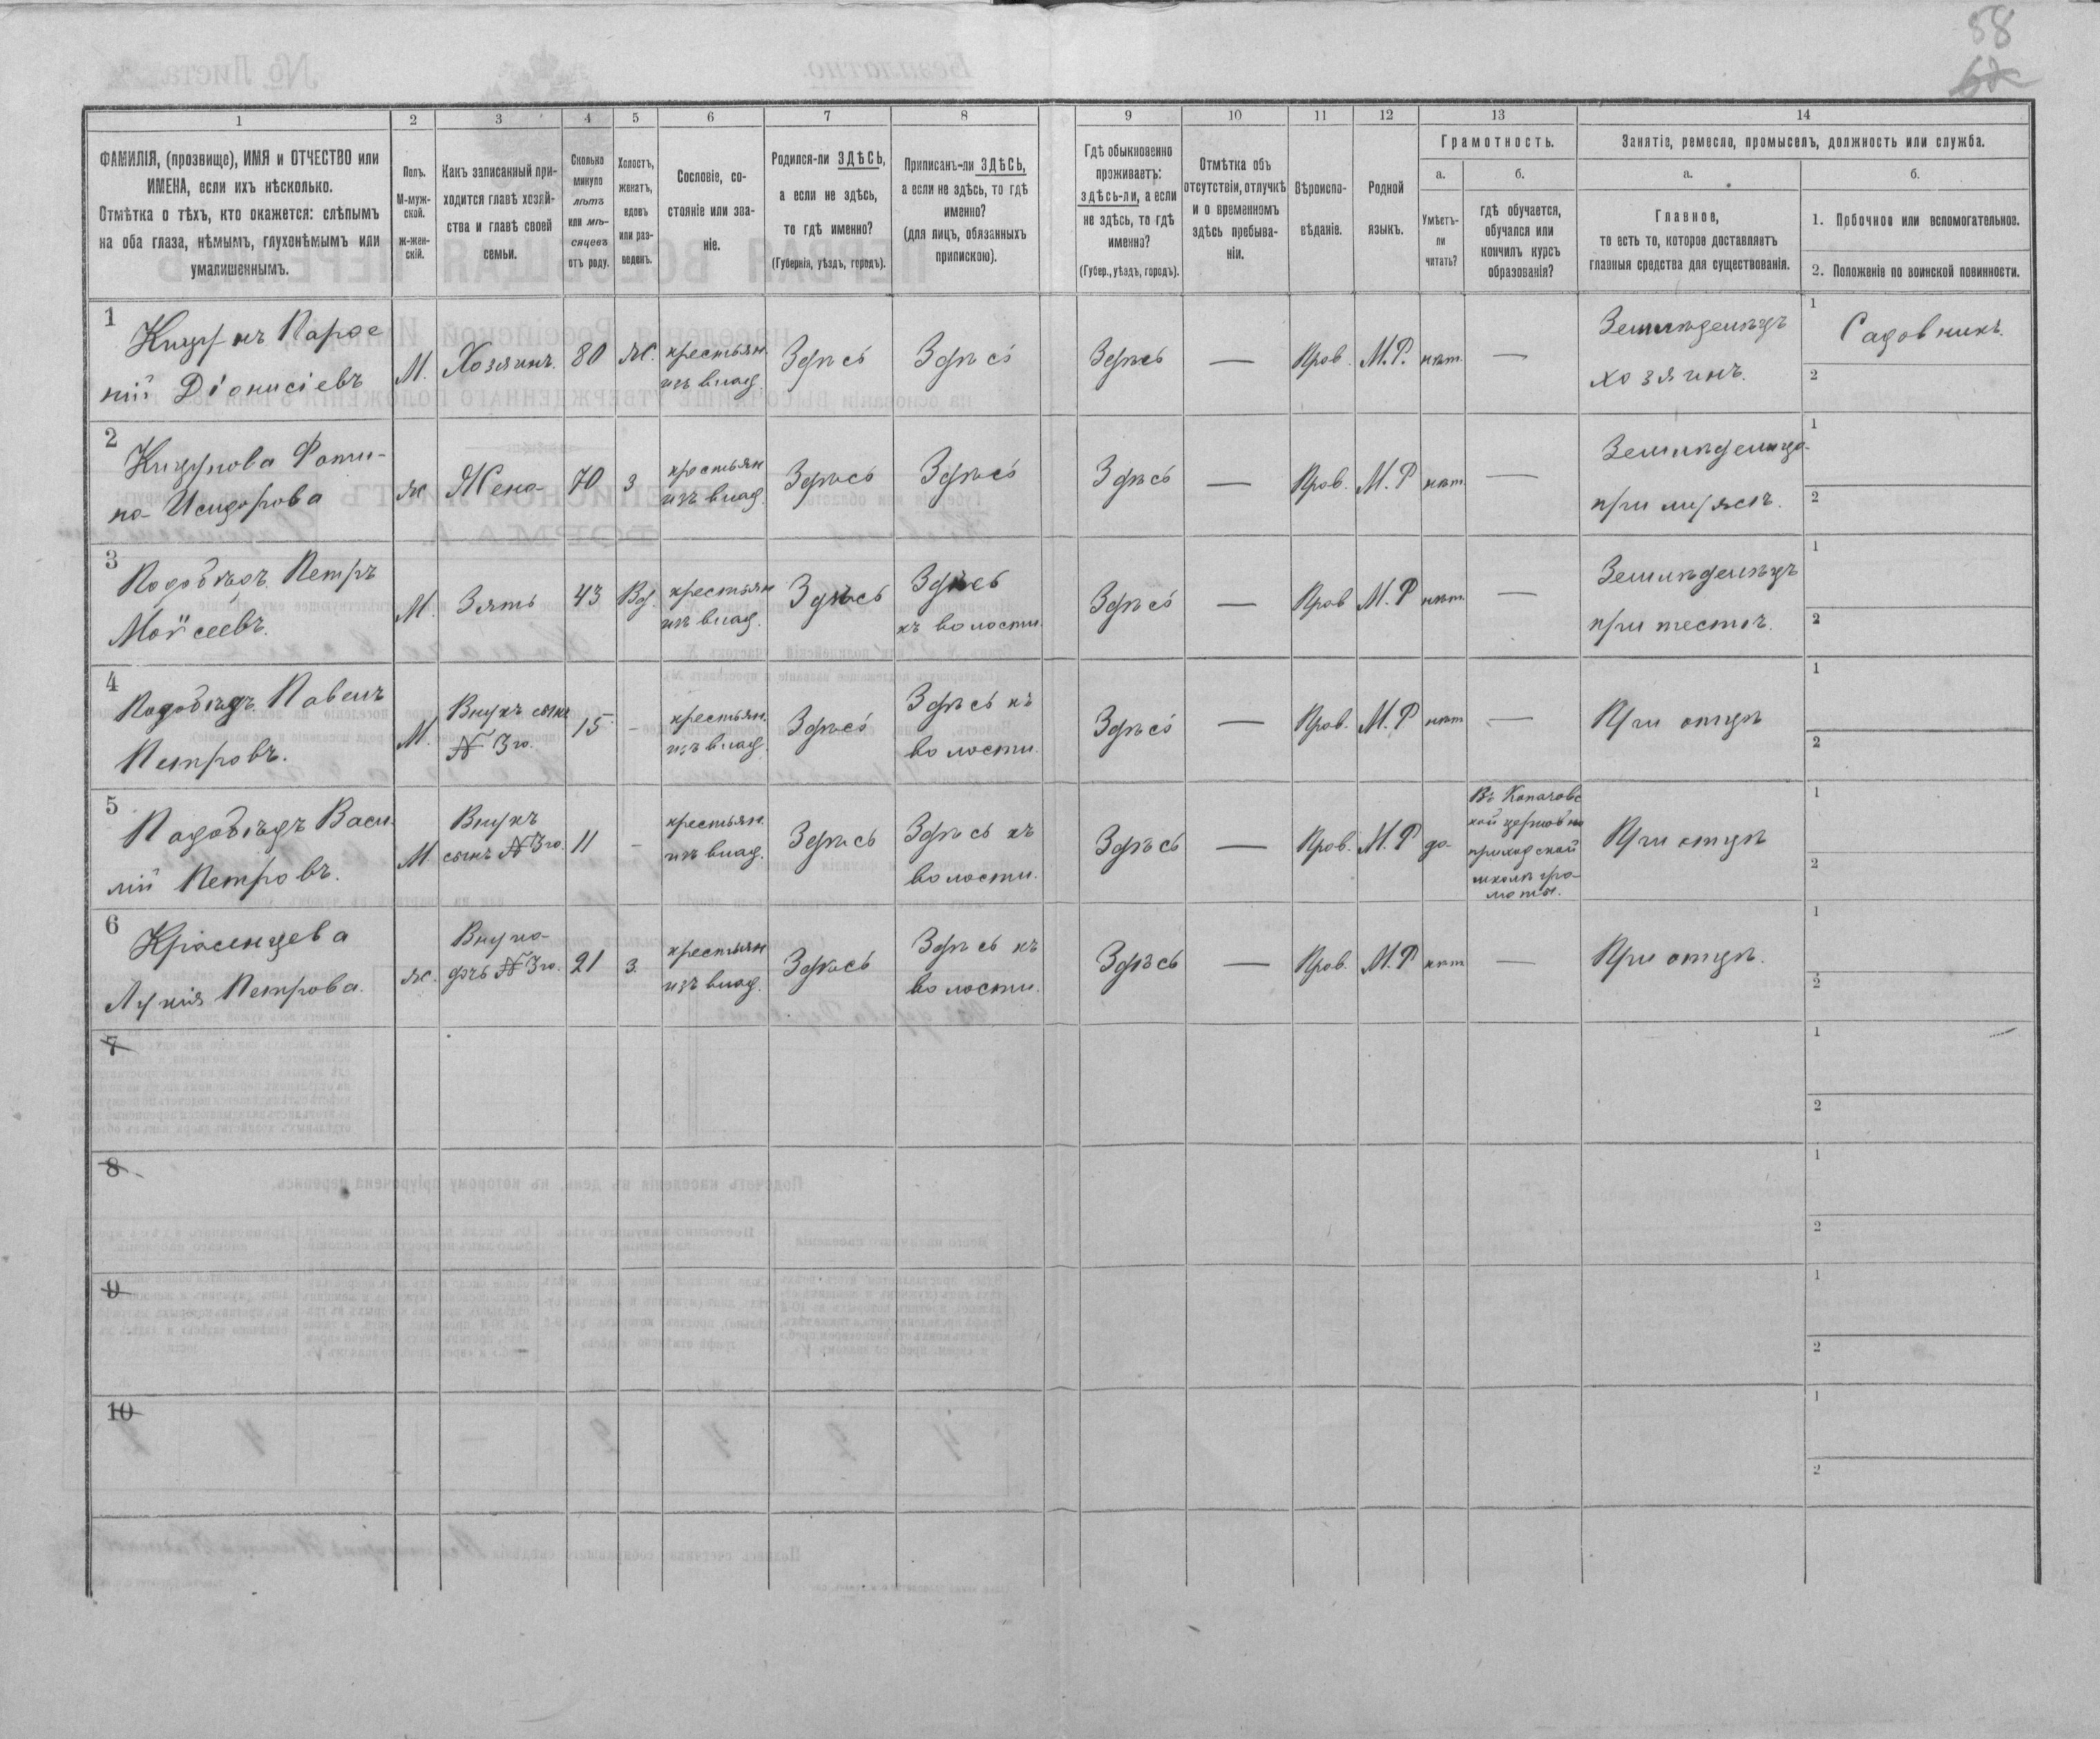 58
1 2 3 4 5 6 7 8 9 10 11 12 13 14
ФАМИЛІЯ, (прозвище), ИМЯ и ОТЧЕСТВО или
ИМЕНА, если ихъ нѣсколько.
Отмѣтка о тѣхъ, кто окажется: слѣпымъ
на оба глаза, нѣмымъ, глухонѣмымъ или
умалишеннымъ.
Полъ.
М-муж-
ской.
Ж-жен-
скій.
Какъ записанный при-
ходится главѣ хозяй-
ства и главѣ своей
семьи.
Сколько
минуло
лѣтъ
или мѣ-
сяцевъ
отъ роду.
Холостъ,
женатъ,
вдовъ
или раз-
веденъ.
Сословіе, со-
стояніе или зва-
ніе.
Родился-ли ЗДѢСЬ,
а если не здѣсь,
то гдѣ именно?
(Губернія, уѣздъ, городъ).
Приписанъ-ли ЗДѢСЬ,
а если не здѣсь, то гдѣ
именно?
(для лицъ, обязанныхъ
припискою).
Гдѣ обыкновенно
проживаетъ:
здѣсь-ли, а если
не здѣсь, то гдѣ
именно?
(Губер., уѣздъ, городъ).
Отмѣтка объ
отсутствіи, отлучкѣ
и о временномъ
здѣсь пребыва-
ніи.
Вѣроиспо-
вѣданіе.
Родной
языкъ.
Грамотность.
а.
Умѣетъ-
ли
читать?
б.
гдѣ обучается,
обучался или
кончилъ курсъ
образованія?
Занятіе, ремесло, промыселъ, должность или служба.
а.
Главное,
то есть то, которое доставляетъ
главныя средства для существованія.
б.
1. Побочное или вспомогательное.
2. Положеніе по воинской повинности.
1
Діонисіевъ
М.
Хозяинъ.
80
Ж.
крестьян.
изъ влад.
Здѣсь
Здѣсь
Здѣсь
—
Прав.
М.Р.
нѣт.
—
Земледѣлецъ
хозяинъ.
1
Садовникъ.
2
2
Исидорова
ж
Жена
70
з
крестьян
изъ влад.
Здѣсь
Здѣсь
Здѣсь
—
Прав.
М.Р
нѣт.
—
при мужѣ.
1
2
3
Подобѣдъ Петръ
Моѵсеевъ.
М.
Зять
43
Вд.
крестьян
изъ влад.
Здѣсь
Здѣсь
къ волости.
Здѣсь
—
Прав
М.Р
нѣт.
—
Земледѣлецъ
при тестѣ.
1
2
4
Подобѣдъ Павелъ
Петровъ.
М.
Внукъ сынъ
№ 3го.
15
-
крестьян.
изъ влад.
Здѣсь
Здѣсь къ
волости.
Здѣсь
—
Прав.
М.Р
нѣт
—
При отцѣ
1
2
5
Подобѣдъ Васи-
лій Петровъ.
М
Внукъ
сынъ № 3го.
11
-
крестьян.
изъ влад.
Здѣсь
Здѣсь къ
волости.
Здѣсь
—
Прав.
М.Р
да
Въ Копачовс
кой церковно
приходской
школѣ гра-
моты.
При отцѣ
1
2
6
Лукія Петрова.
ж.
Внука
дочь № 3го.
21
з.
крестьян
изъ влад.
Здѣсь
Здѣсь къ
волости.
Здѣсь
—
Прав.
М.Р
нѣт
—
При отцѣ.
1
2
7
1
2
8
1
2
9
1
2
10
1
2